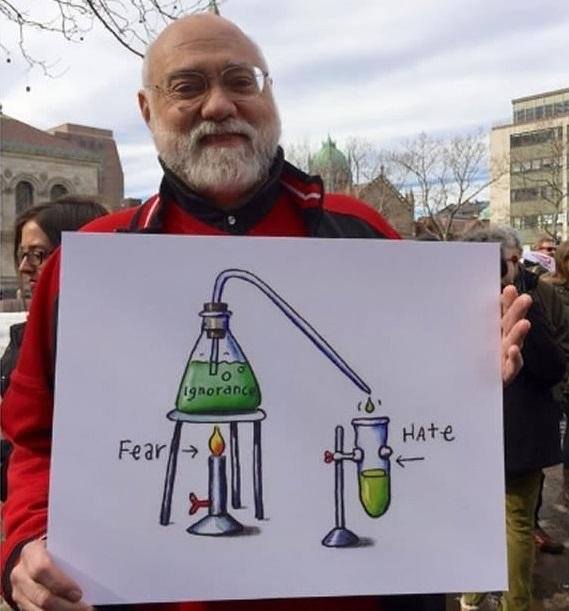 Ignorance
Fear
HAte